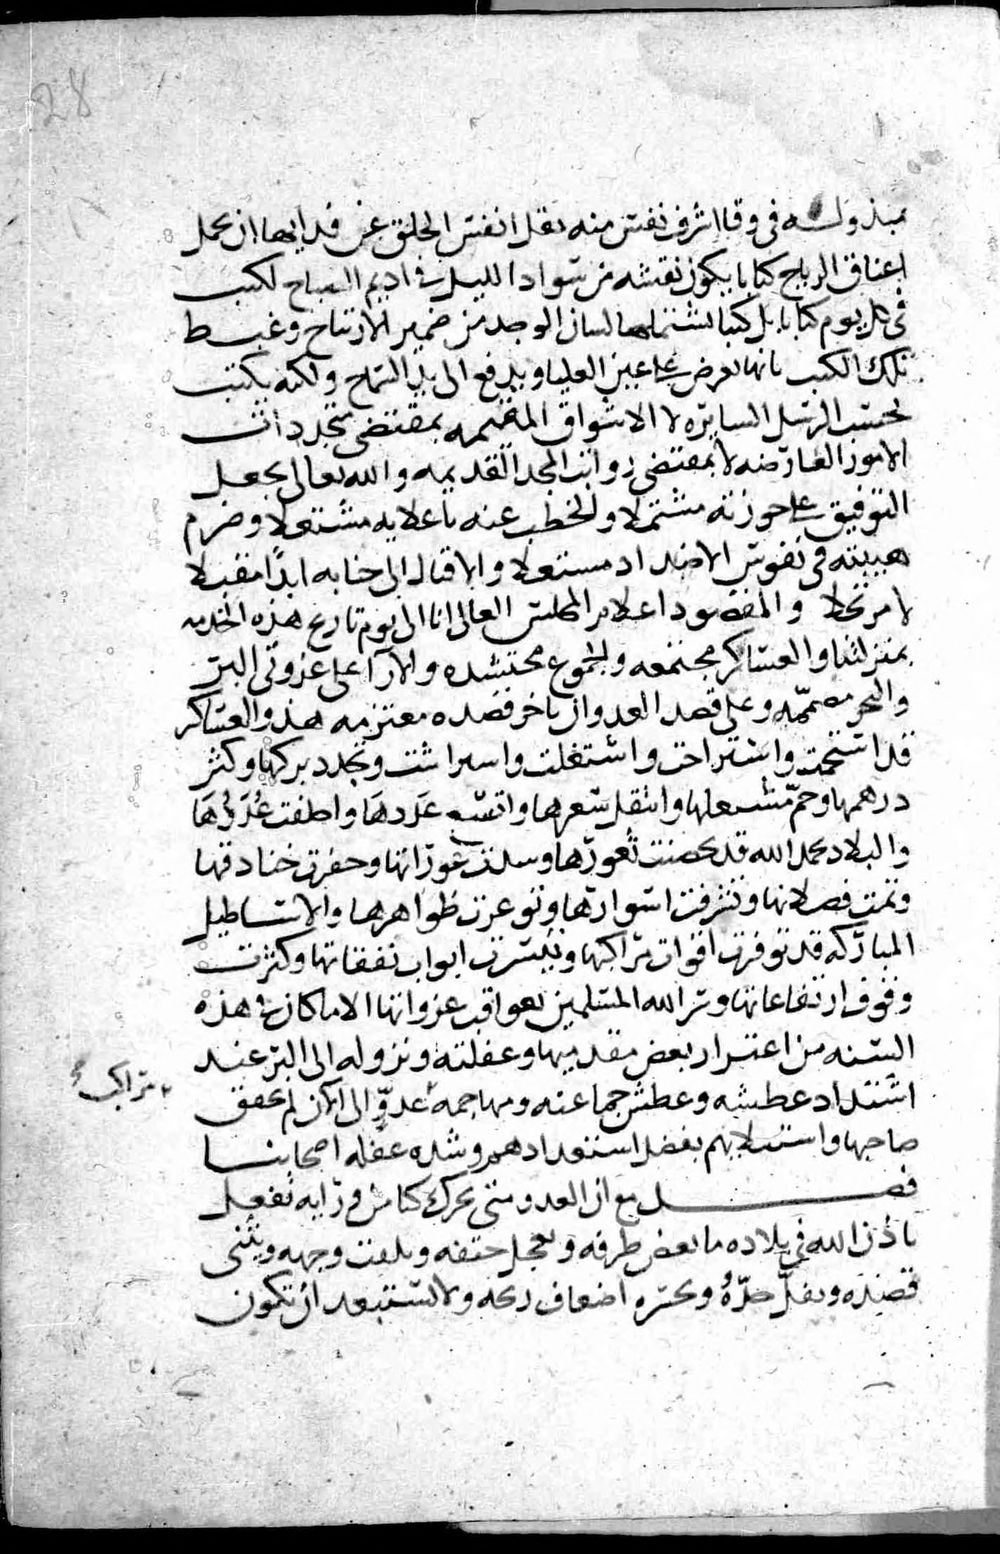 28
مبذوله فى وقا اشرف نفس منه نقل انفس الخلق عن فدايها ان يحمل
اعناق الرياح كتابا يكون نقشه من سواد الليل فى اديم الصباح لكتب
فى كل يوم كتابا بل كتبا لسان الوجد من ضمير الارتياح وغبط
تلك الكتب بانها تعرض على عين العليا ويدفع الى يد السماح ولكنه يكتب
بحسب الرسل السايره لا الاشواق المخيمه بمقتضى متجددات
الامور العارضه لا بمقتضى رواتب المجد القديمه والله تعالى يجعل
التوفيق على حوزته مشتملا والخطب عنه باعلايه مشتعلا وضرم
هيبته فى نفوس الاضداد مستعلا والاقبال الى جنابه ابدًا مقبلا
لا مرتحلا والمقصود اعلام المجلس العالى انا الى يوم تاريخ هذه الخدمه
بمنزلتنا والعساكر مجتمعه والجموع محتشده والارا على غزوتى البر
والبحر مصممه وعلى قصد العدو ان تاخر قصده معتزمه هذا والعساكر
قد استجمت واستراحت واشتغلت واسراشت وتجدد بركها وكثر
درهمها وحم مشعلها وانتقل سعرها واتسع عَددهَا واطلقت عُدَدُهَا
والبلاد بحمد الله قد تحصنت ثغورها وسدت عوراتها وحفرت خنادقها
وتمت فصلاتها وتشرفت اسوارها وتوعرت ظواهرها والاساطيل
المباركه قد توفرت اقوات مراكبها وتيسرت ابواب نفقاتها وكثرت
وفوف ارتفاعاتها وسر الله المسلمين بعواقب غزواتها الا ما كان فى هذه
السنه من اغترار بعض مقدميها وغفلته ونزوله الى البر عند
اشتداد عطشه وعطش جماعته ومهاجمه عدوٍّ الى الان لم يحقق
مراكب صح
صاحبها واستيلايهم بفضل استعدادهم وشده غفله اصحابنا
فصل مع ان العدو متى تحرك كنا من ورايه نفعل
باذن الله فى بلاده ما يغض طرفه ويعجل حتفه ويلفت وجهه ويثنى
قصده ويفل حدّهُ ويخسره اضعاف ربحه ولا نستبعد ان تكون